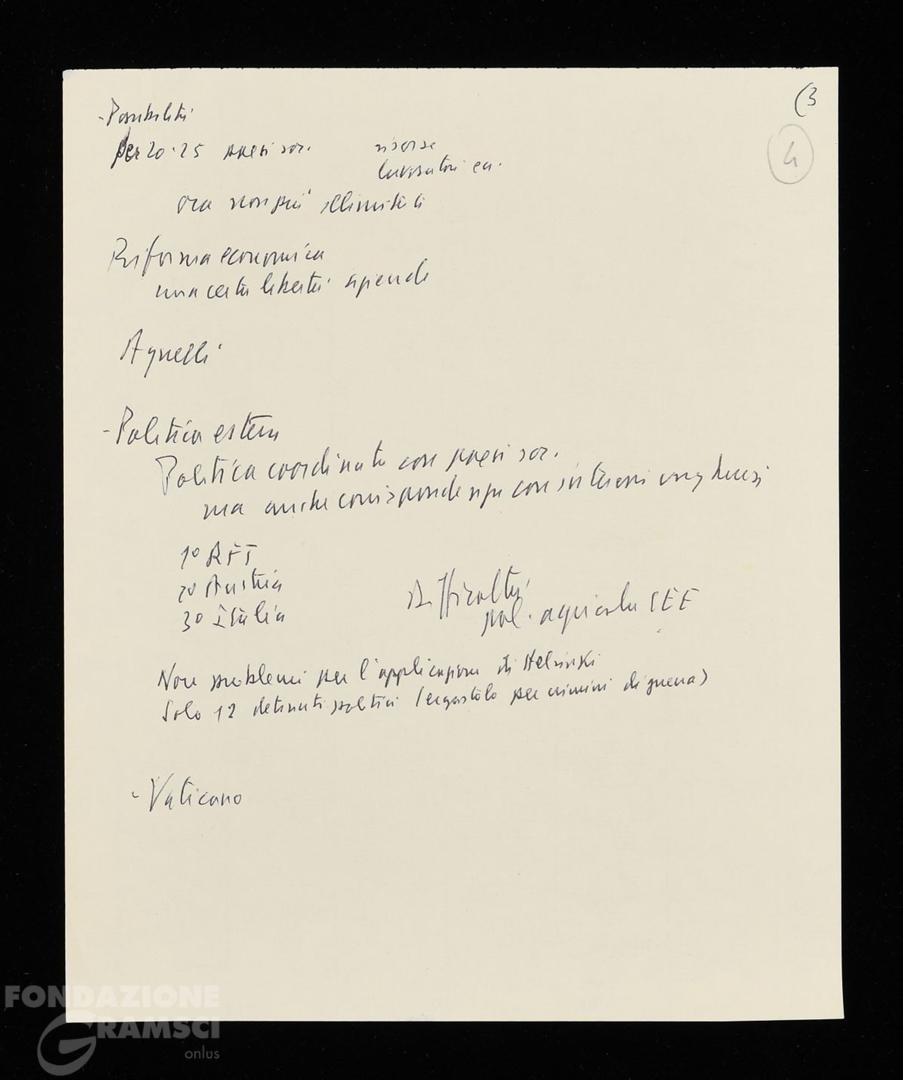 (3
4
- Possibilità
per 20-25 paesi soc. risorse
lavoratori ecc.
ora non più illimitati
Riforma economica
una certa libertà aziende
Agnelli
- Politica estera
Politica coordinata con paesi soc.
ma anche corrispondenze con interessi ungheresi
1° RFT
2° Austria
3° Italia
Difficoltà
pol. agricola CEE
Non problemi per l'applicazione di Helsinki
Solo 12 detenuti politici (ergastolo per crimini di guerra)
- Vaticano
FONDAZIONE
GRAMSCI
onlus